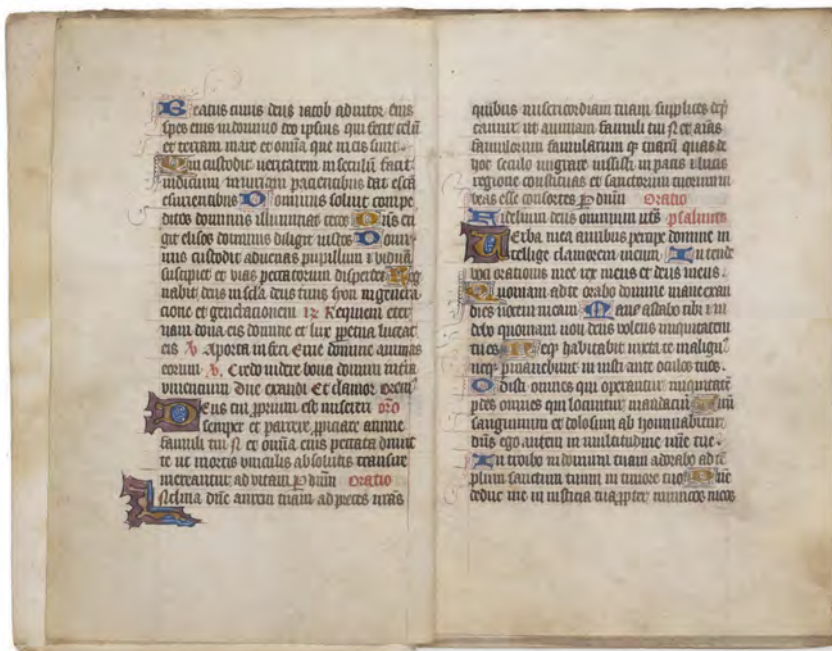 Beatus cuius deus iacob adiutor eius
spes eius in domino deo ipsius qui fecit celū
et terram mare et omīa que in eis sunt
Qui custodit ueritatem in seculū facit
iudicium iniuriam pacientibus dat escā
esurientibus Dominus soluit compe
ditos dominus illuminat cecos Dn̄s eri
git elisos dominus diligit iustos Domi
nus custodit aduenas pupillum ⁊ viduā
suscipiet et vias peccatorum disperdet Reg
nabit deus in scl̄a deus tuus syon in genera
cione et generacionem Requiem eter
nam dona eis domine et lux ꝑpetua luceat
eis ℣. Aporta inferi Erue domine animas
eorum ℣. Credo uidere bona domini in t̄ra
viuencium Dn̄e exaudi Et clamor Orem⁹
Deus cui ꝓprium est misereri or̄o
semper et parcere ꝓpiciare anime
famuli tui N et omīa eius peccata dimit
te ut mortis vinculis absolutis transire
mereantur ad vitam ꝑ dn̄m Oratio
Inclina dn̄e aurem tuam ad preces nr̄as
quibus misericordiam tuam supplices dep̄
camur ut animam famuli tui N et aīas
famulorum famularum qꝫ tuarū quas de
hoc seculo migrare iussisti in pacis ⁊ lucis
regione constituas et sanctorum tuorum iu
beas esse consortes ꝑ dn̄m Oratio
Fidelium deus omnium psalmus
Uerba mea auribus percipe domine in
tellige clamorem meum Intende
voci orationis mee rex meus et deus meus
Quoniam ad te orabo domine mane exau
dies uocem meam Mane astabo tibi ⁊ vi
debo quoniam non deus volens iniquitatem
tu es Neqꝫ habitabit iuxta te malign⁹
neqꝫ ꝑmanebunt iniusti ante oculos tuos
Odisti omnes qui operantur iniquitatē
ꝑdes omnes qui locuntur mendaciū Uirū
sanguinum et dolosum abhominabitur
dn̄s ego autem in multitudine mīe tue
Introibo in domum tuam adorabo ad tē
plum sanctum tuum in timore tuo Dn̄e
deduc me in iusticia tua ꝓpter inimicos meos